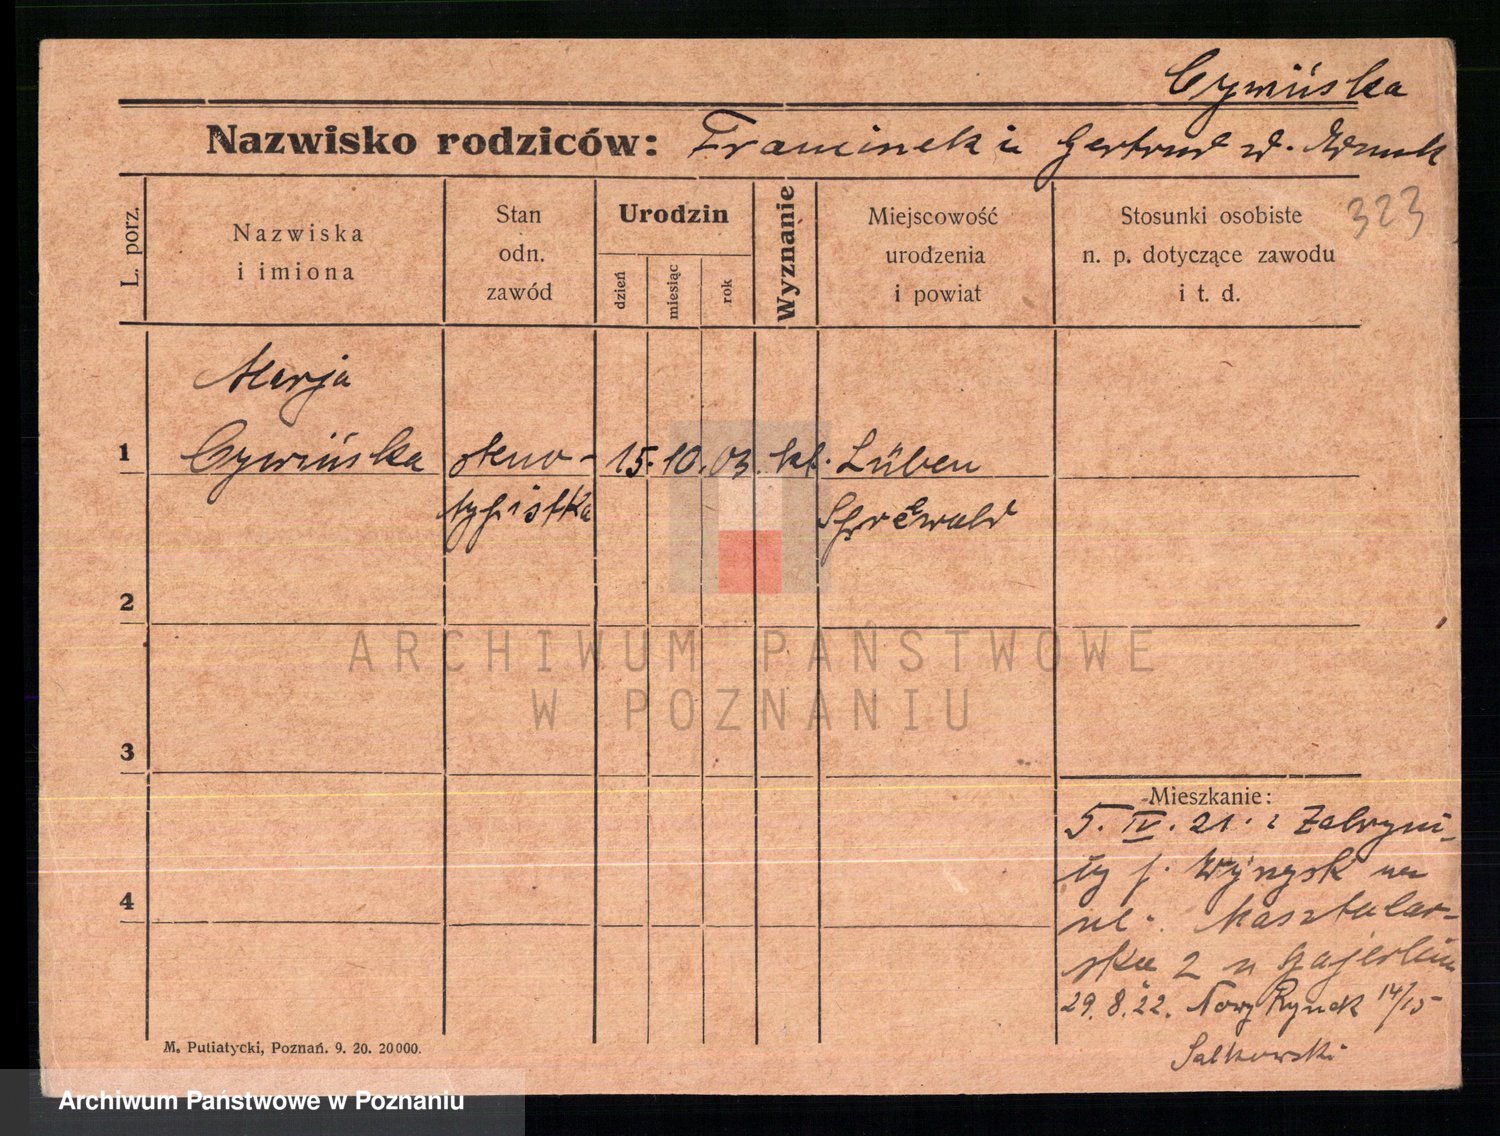 Cywińska
Nazwisko rodziców: Franciszek i Gertrud
323
L. porz.
Nazwiska
i imiona
Stan
odn.
zawód
Urodzin
dzień
miesiąc
rok
Wyznanie
Miejscowość
urodzenia
i powiat
Stosunki osobiste
n. p. dotyczące zawodu
i t. d.
Marja
1 Cywińska steno- 15. 10. 03. kt. Lüben
typistka Spreewald
2
3
4
Mieszkanie:
5. IV. 21. z
ul. Masztalar-
ska 2 u
29. 8. 22. Nowy Rynek 14/15
Salkowski
M. Putiatycki, Poznań. 9. 20. 20000.
ARCHIWUM PAŃSTWOWE
W POZNANIU
Archiwum Państwowe w Poznaniu